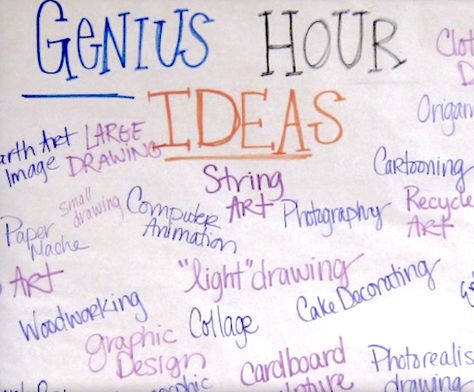 GENIUS HOUR
IDEAS
Clot
D
Origam
arth Art
Image
LARGE
DRAWING
Cartooning
String
ART
small
drawing
Computer
Animation
Photography
Recycle
ART
Paper
Mache
ART
"light" drawing
Cake Decorating
Woodworking
Collage
graphic
Design
Cardboard
Photorealis
drawing